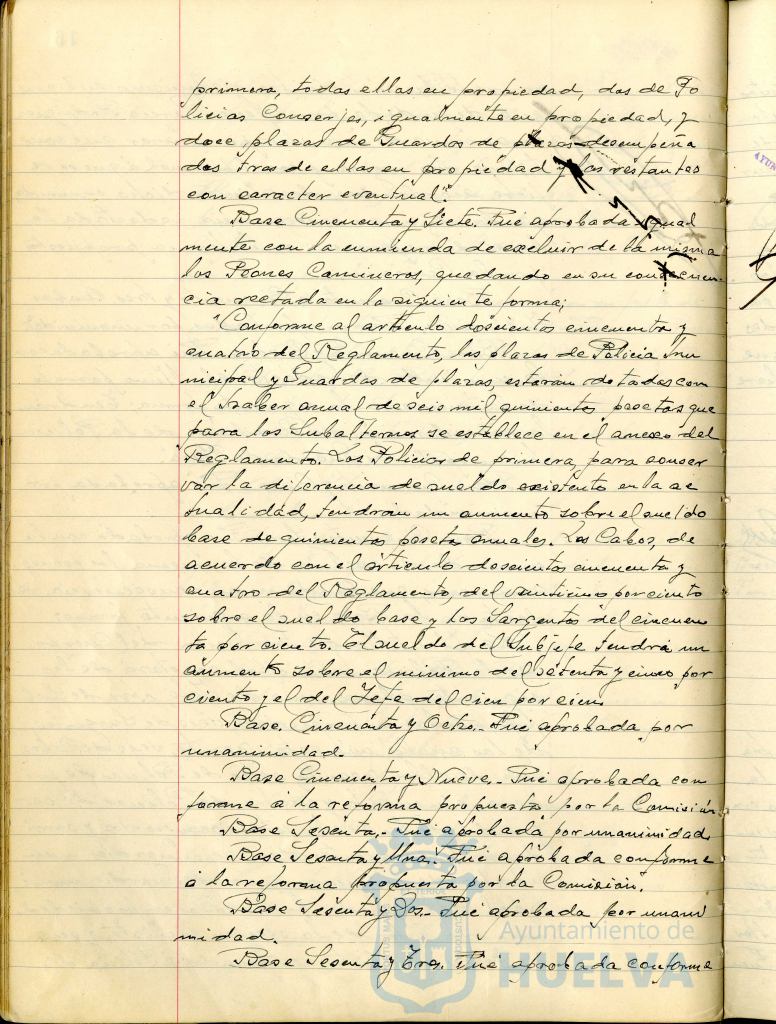 primera, todas ellas en propiedad, dos de Po
licias Conserjes, igualmente en propiedad, y
doce plazas de Guardas de plazas desempeña
das tres de ellas en propiedad y las restantes
con caracter eventual".
Base Cincuenta y Siete. Fué aprobada igual
mente con la enmienda de excluir de la misma
los Peones Camineros, quedando en su consecuen-
cia rectada en la siguiente forma;
"Conforme al artículo doscientos cincuenta y
cuatro del Reglamento, las plazas de Policia Mu
nicipal y Guardas de plazas, estarán dotadas con
el haber anual de seis mil quinientas pesetas que
para los Subalternos se establece en el anexo del
Reglamento. Los Policias de primera, para conser
var la diferencia de sueldo existente en la ac
tualidad, tendrán un aumento sobre el sueldo
base de quinientas peseta anuales. Los Cabos, de
acuerdo con el artículo doscientos cincuenta y
cuatro del Reglamento, del veinticinco por ciento
sobre el sueldo base y los Sargentos del cincuen
ta por ciento. El sueldo del Subjefe tendrá un
aumento sobre el minimo del setenta y cinco por
ciento y el del Jefe del cien por cien.
Base. Cincuenta y Ocho.- Fué aprobada por
unanimidad.
Base Cincuenta y Nueve.- Fué aprobada con
forme á la reforma propuesta por la Comisión
Base Sesenta.- Fué aprobada por unanimidad.
Base Sesenta y Una.- Fué aprobada conforme
á la reforma propuesta por la Comisión.
Base Sesenta y Dos.- Fué aprobada por unani
midad.
Base Sesenta y Tres. Fué aprobada conforme
Ayuntamiento de
HUELVA